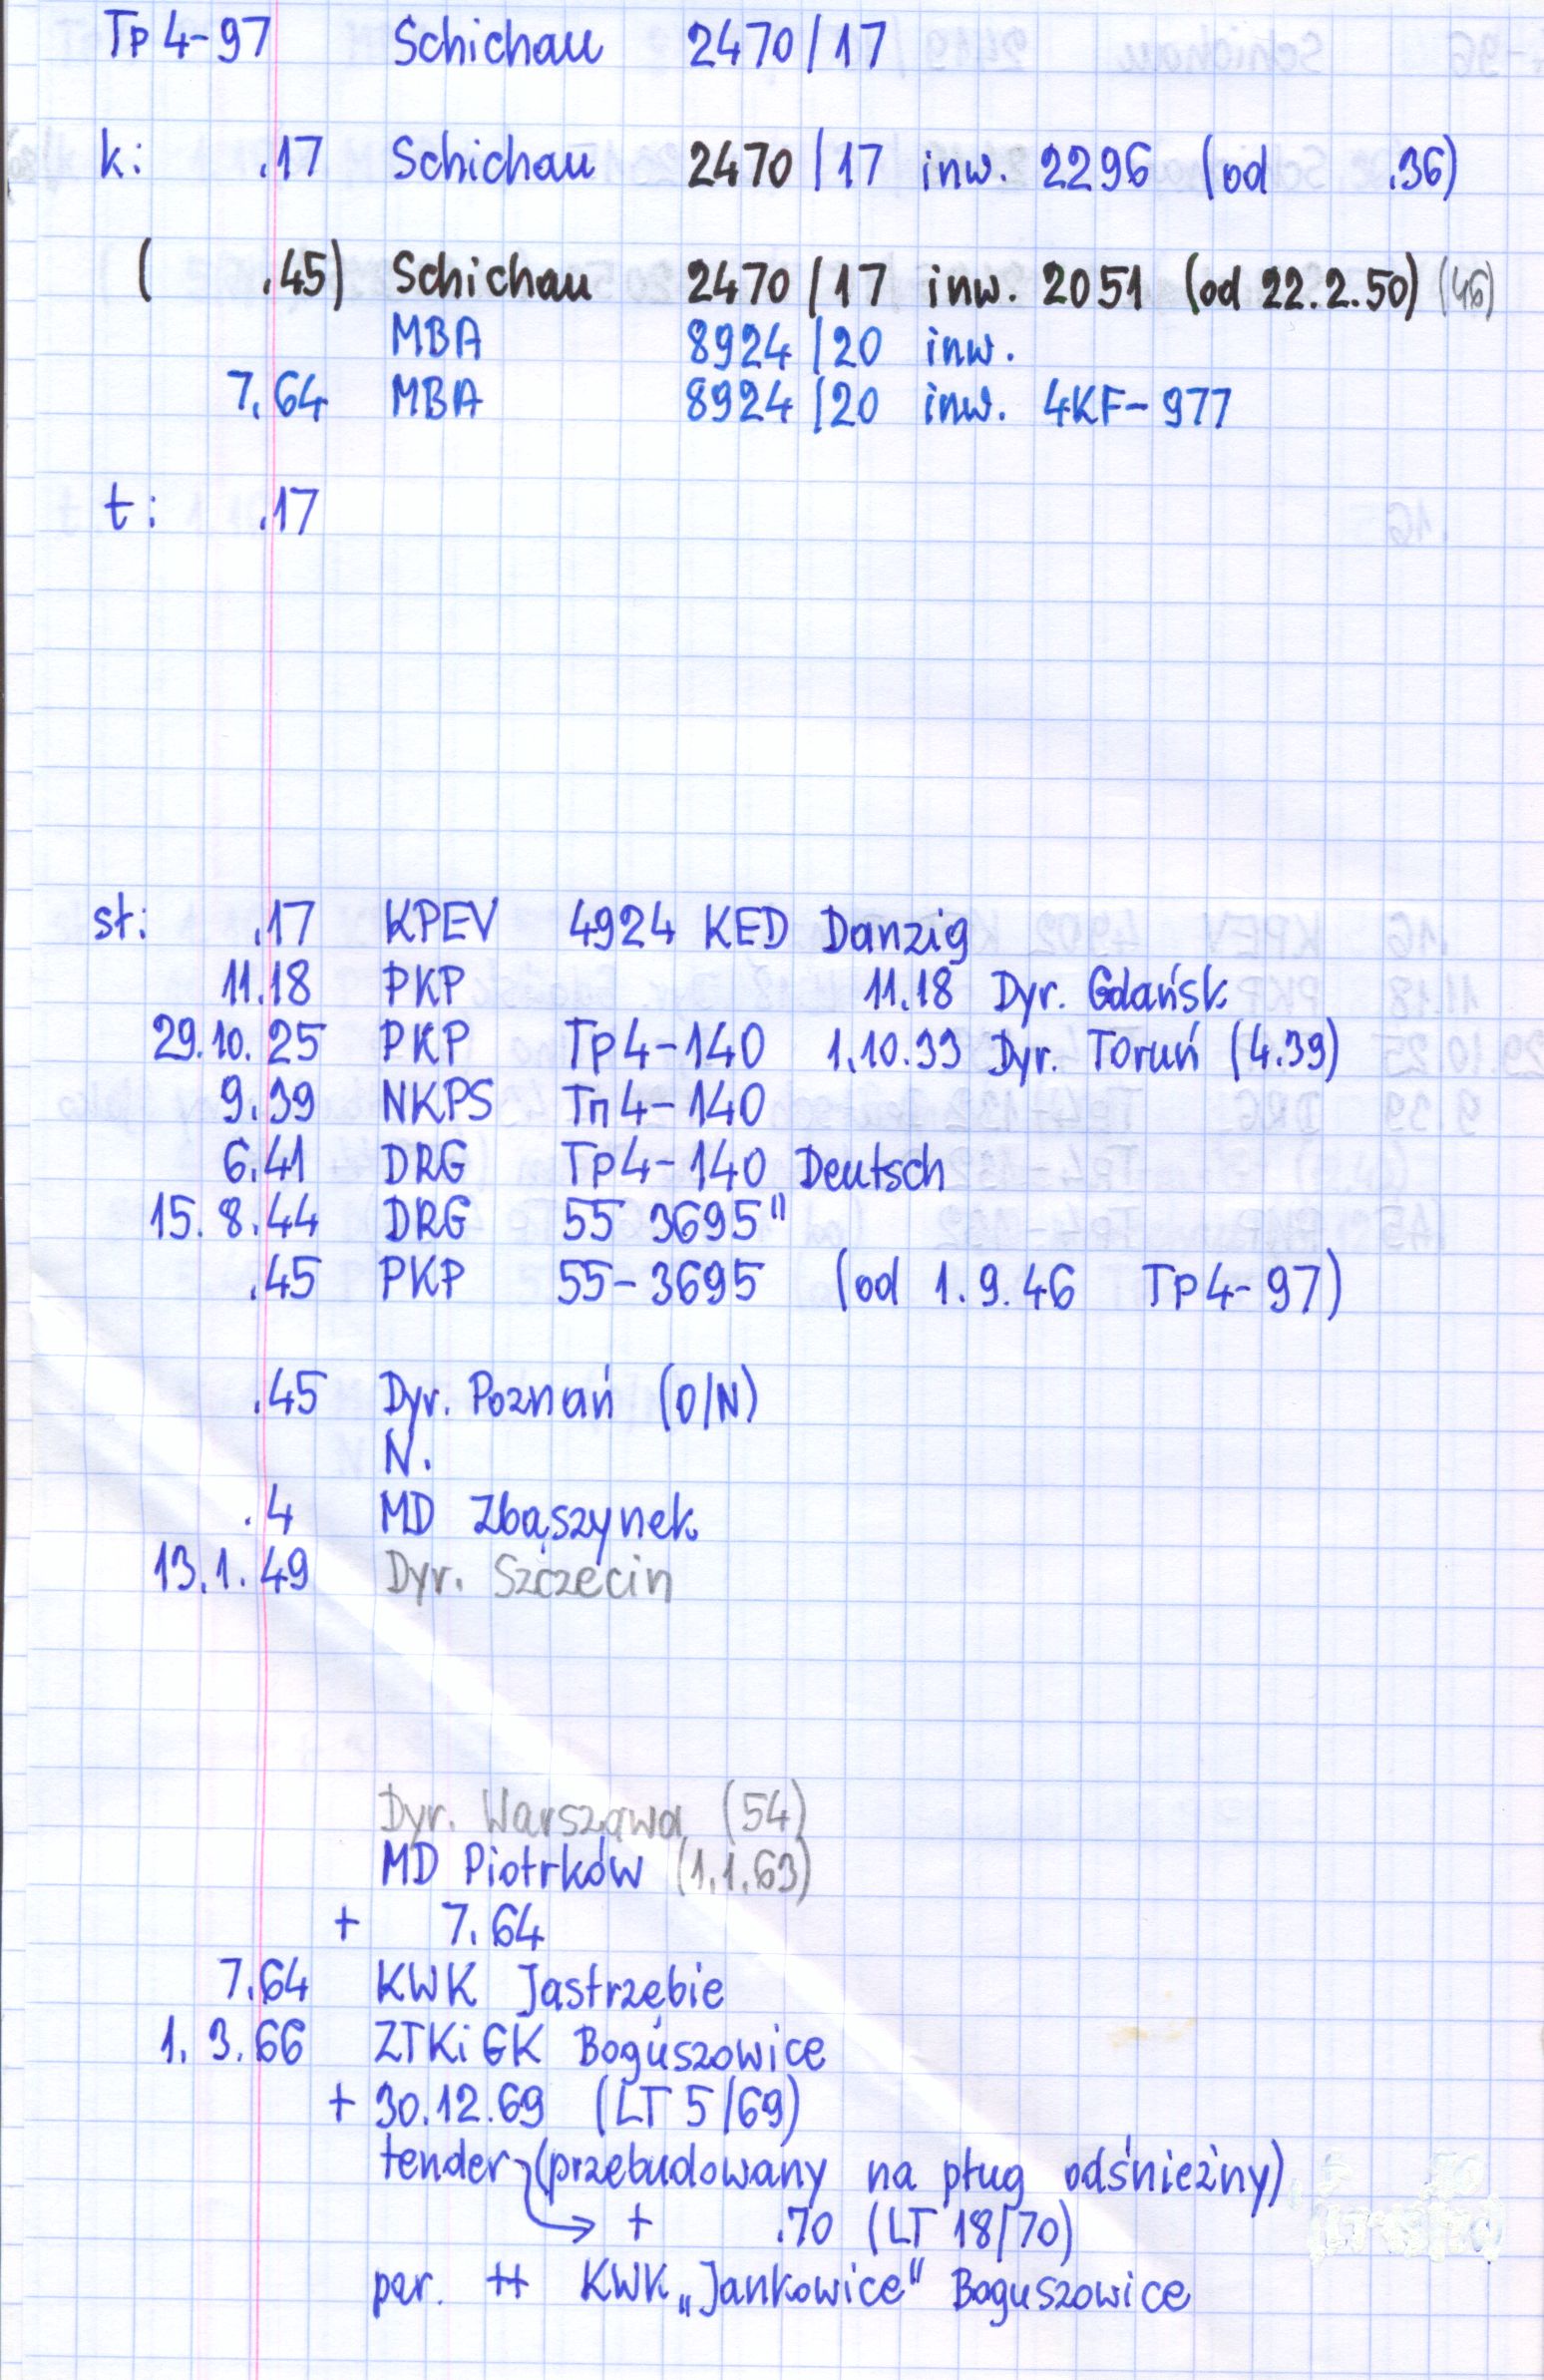 Tp4-97 Schichau 2470/17
k: .17 Schichau 2470/17 inw. 2296 (od .36)
( .45) Schichau 2470/17 inw. 2051 (od 22.2.50) (46)
MBA 8924/20 inw.
7.64 MBA 8924/20 inw. 4KF-977
t: .17
st: .17 KPEV 4924 KED Danzig
11.18 PKP 11.18 Dyr. Gdańsk
29.10.25 PKP Tp4-140 1.10.33 Dyr. Toruń (4.39)
9.39 NKPS Tп4-140
6.41 DRG Tp4-140 Deutsch
15.8.44 DRG 55 3695"
.45 PKP 55-3695 (od 1.9.46 Tp4-97)
.45 Dyr. Poznań (O/N)
N.
.4 MD Zbąszynek
13.1.49 Dyr. Szczecin
Dyr. Warszawa (54)
MD Piotrków (1.1.63)
+ 7.64
7.64 KWK Jastrzębie
1.3.66 ZTKiGK Boguszowice
+ 30.12.69 (LT 5/69)
tender (przebudowany na pług odśnieżny)
→ + .70 (LT 18/70)
par. ++ KWK „Jankowice" Boguszowice